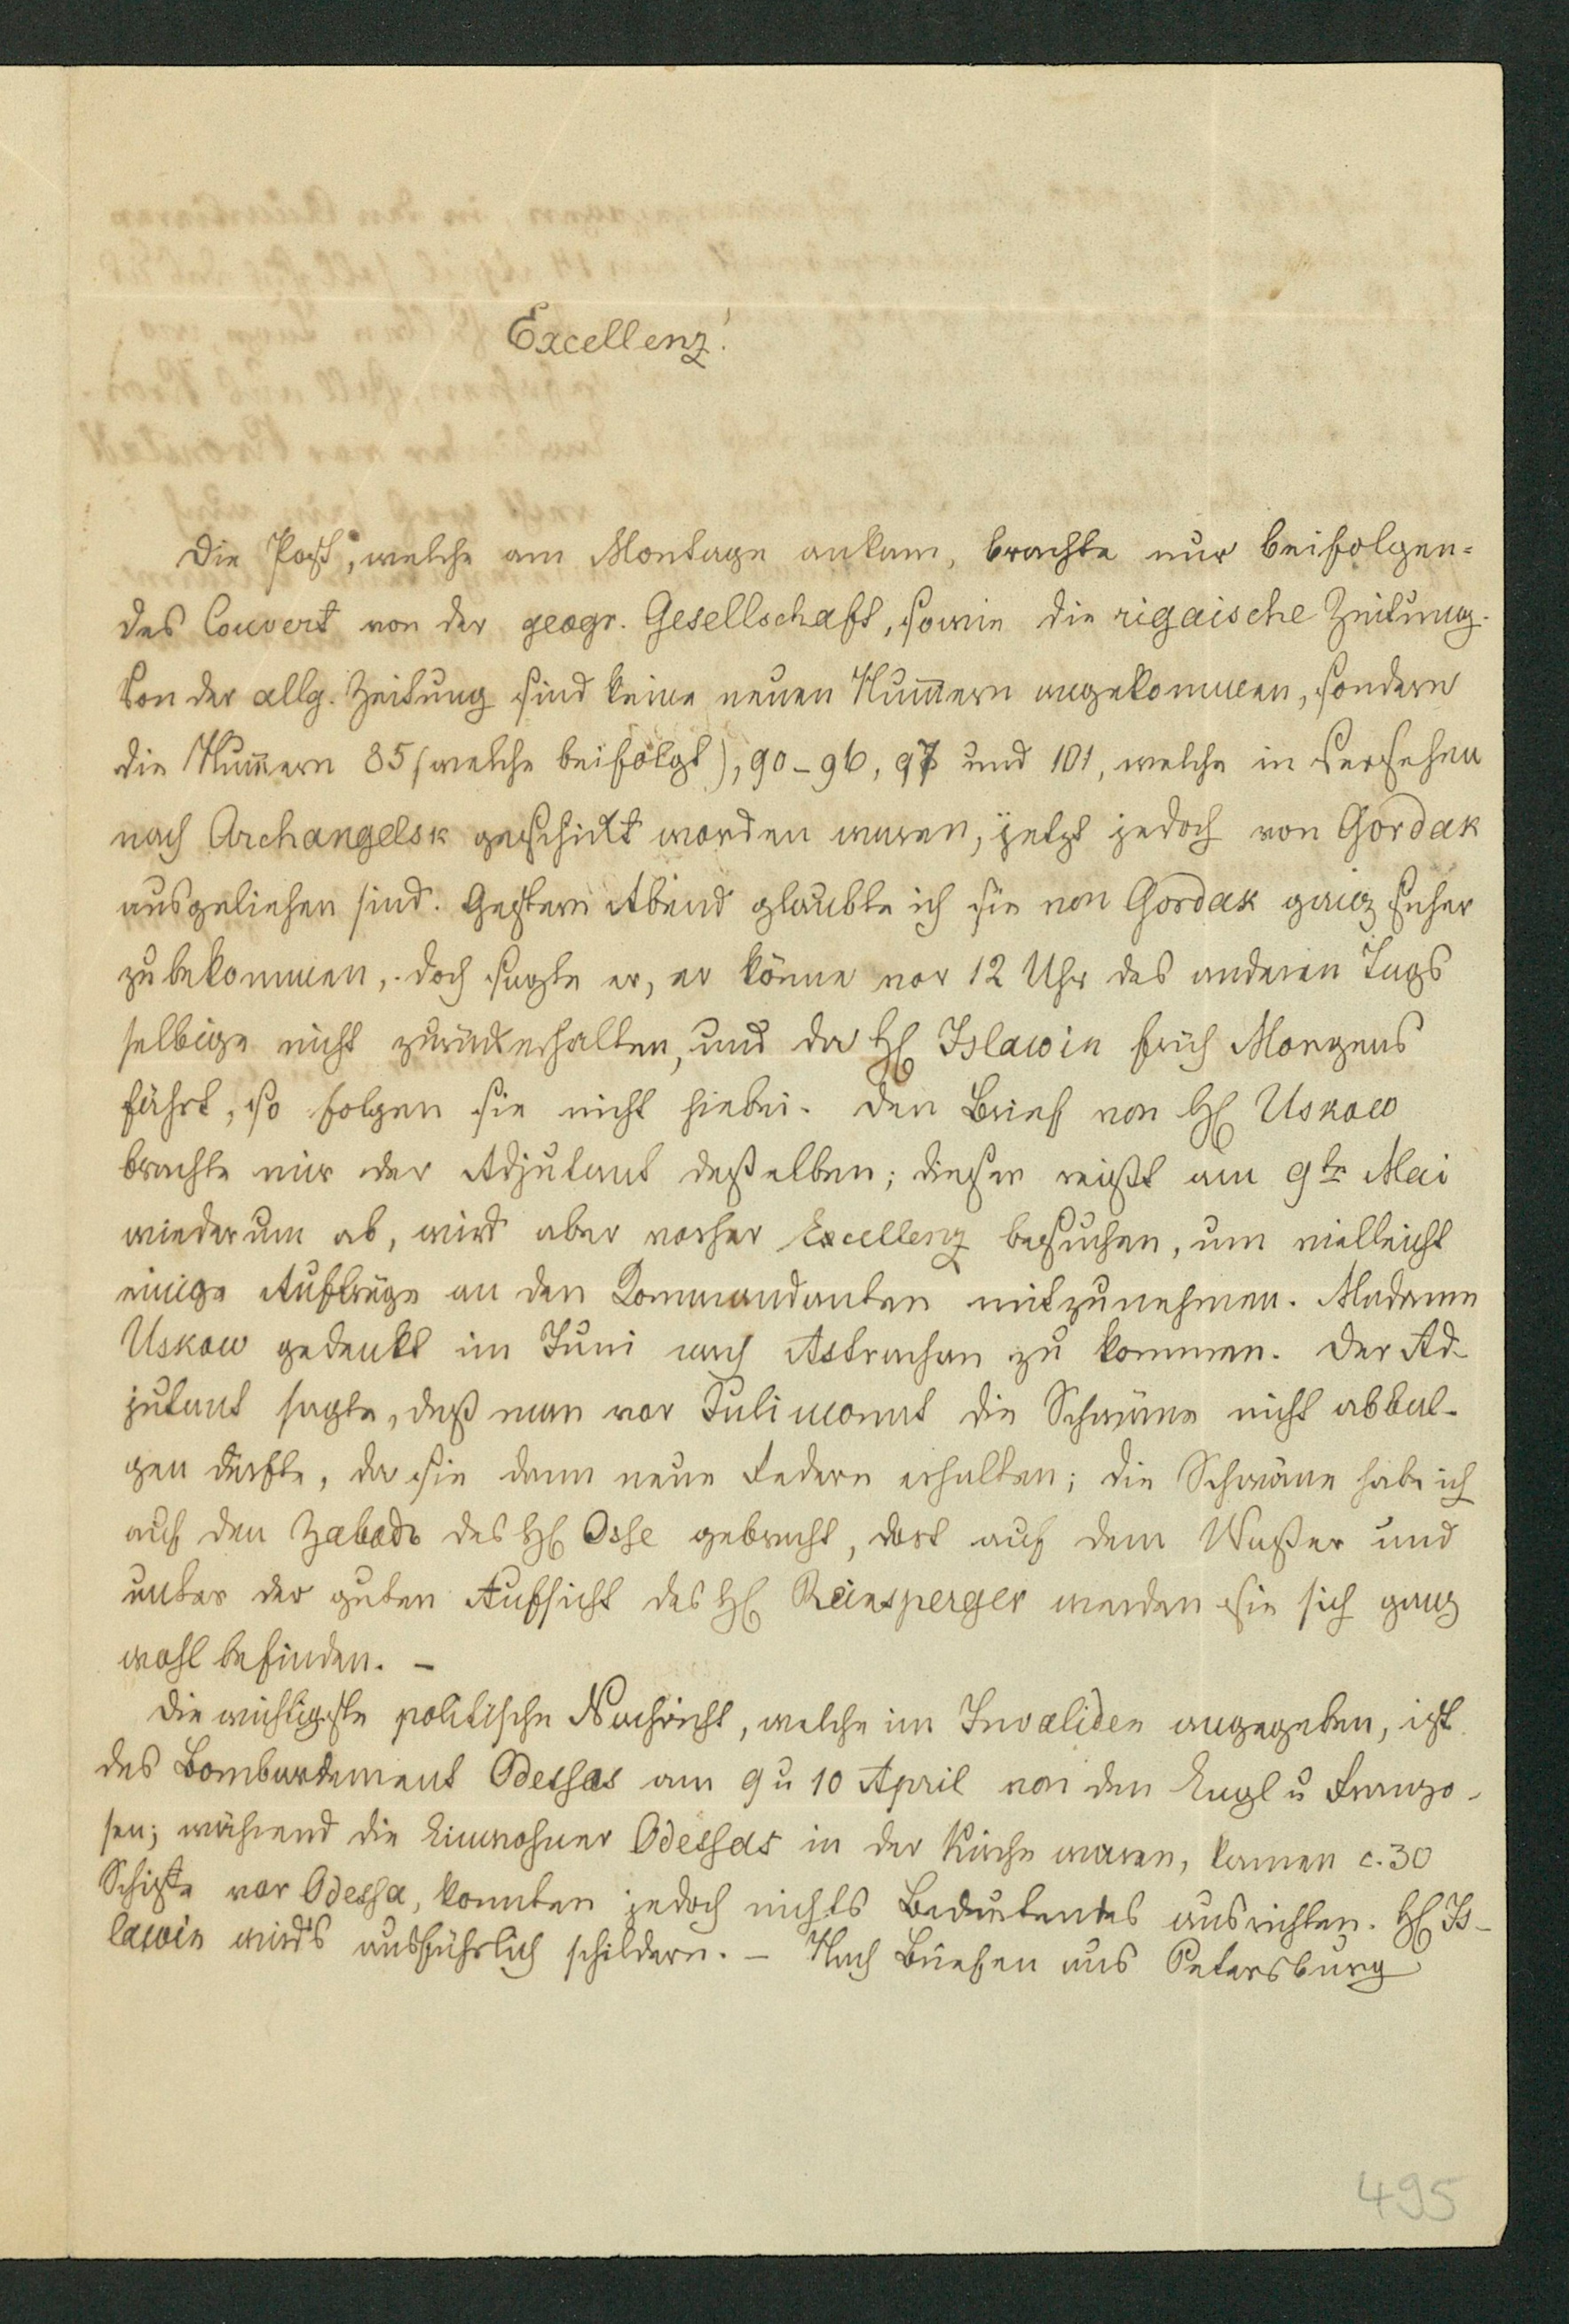 Excellenz!
Die Post, welche am Montage ankam, brachte nur beifolgen-
des Couvert von der geogr. Gesellschaft, sowie die rigaische Zeitung.
Von der allg. Zeitung sind keine neuen Num̄ern angekommen, sondern
die Num̄ern 85 (welche beifolgt), 90-96, 97 und 101, welche in Versehen
nach Archangelsk geschickt worden waren, jetzt jedoch von Gordak
ausgeliehen sind. Gestern Abend glaubte ich sie von Gordak ganz sicher
zu bekommen, doch sagte er, er könne vor 12 Uhr des anderen Tags
selbige nicht zurückerhalten, und da H Islawin früh Morgens
fährt, so folgen sie nicht hiebei. Den Brief von H Uskow
brachte mir der Adjutant desselben; dieser reist am 9ten Mai
wiederum ab, wird aber vorher Excellenz besuchen, um vielleicht
einige Aufträge an den Commandanten mitzunehmen. Madame
Uskow gedenkt im Juni nach Astrachan zu kommen. Der Ad-
jutant sagte, daß man vor Julimonat die Schwäne nicht abbal-
gen dürfte, da sie dann neue Federn erhalten; die Schwäne habe ich
auf den des H Osse gebracht, dort auf dem Waßer und
unter der guten Aufsicht des H Reinsperger werden sie sich ganz
wohl befinden. -
Die wichtigste politische Nachricht, welche im Invaliden angegeben, ist
das Bombardement Odessas am 9 u 10 April von den Engl u Franzo-
sen; während die Einwohner Odessas in der Kirche waren, kamen c. 30
Schiffe vor Odessa, konnten jedoch nichts Bedeutendes ausrichten. H Is-
lawin wird's ausführlich schildern. - Nach Briefen aus Petersburg
495